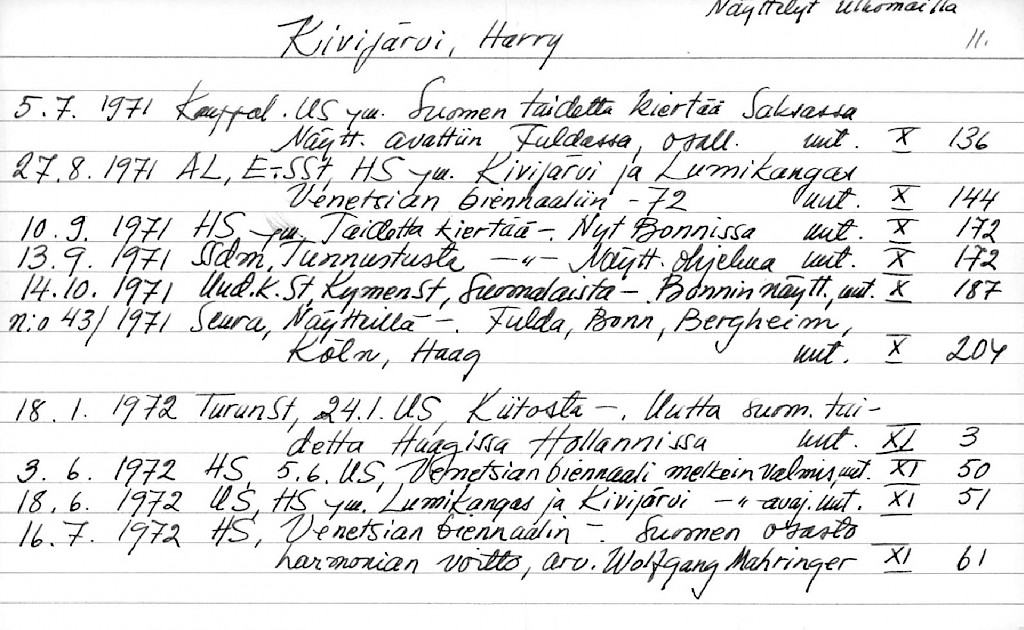 Näyttelyt ulkomailla
Kivijärvi, Harry 11.
5.7. 1971 Kauppal. US ym. Suomen taidetta kiertää Saksassa
Näytt. avattiin Fuldassa, osall. uut. X 136
27.8.1971 AL, E-SSt, HS ym. Kivijärvi ja Lumikangas
Venetsian biennaaliin -72 uut. X 144
10.9. 1971 HS ym. Taidetta kiertää -. Nyt Bonnissa uut. X 172
13.9. 1971 SSdm, Tunnustusta -"- Näytt. ohjelma uut. X 172
14.10. 1971 Uud.K.St, KymenSt, Suomalaista -. Bonnin näytt., uut. X 187
n:o 43/1971 Seura, Näytteillä -. Fulda, Bonn, Bergheim,
Köln, Haag uut. X 204
18.1. 1972 TurunSt, 24.1. US, Kiitosta -. Uutta suom. tai-
detta Haagissa Hollannissa uut. XI 3
3.6. 1972 HS, 5.6. US, Venetsian biennaali melkein valmis, uut. XI 50
18.6. 1972 US, HS ym. Lumikangas ja Kivijärvi -"- avaj. uut. XI 51
16.7. 1972 HS, Venetsian biennaalin -. Suomen osasto
harmonian voitto, arv. Wolfgang Mahringer XI 61